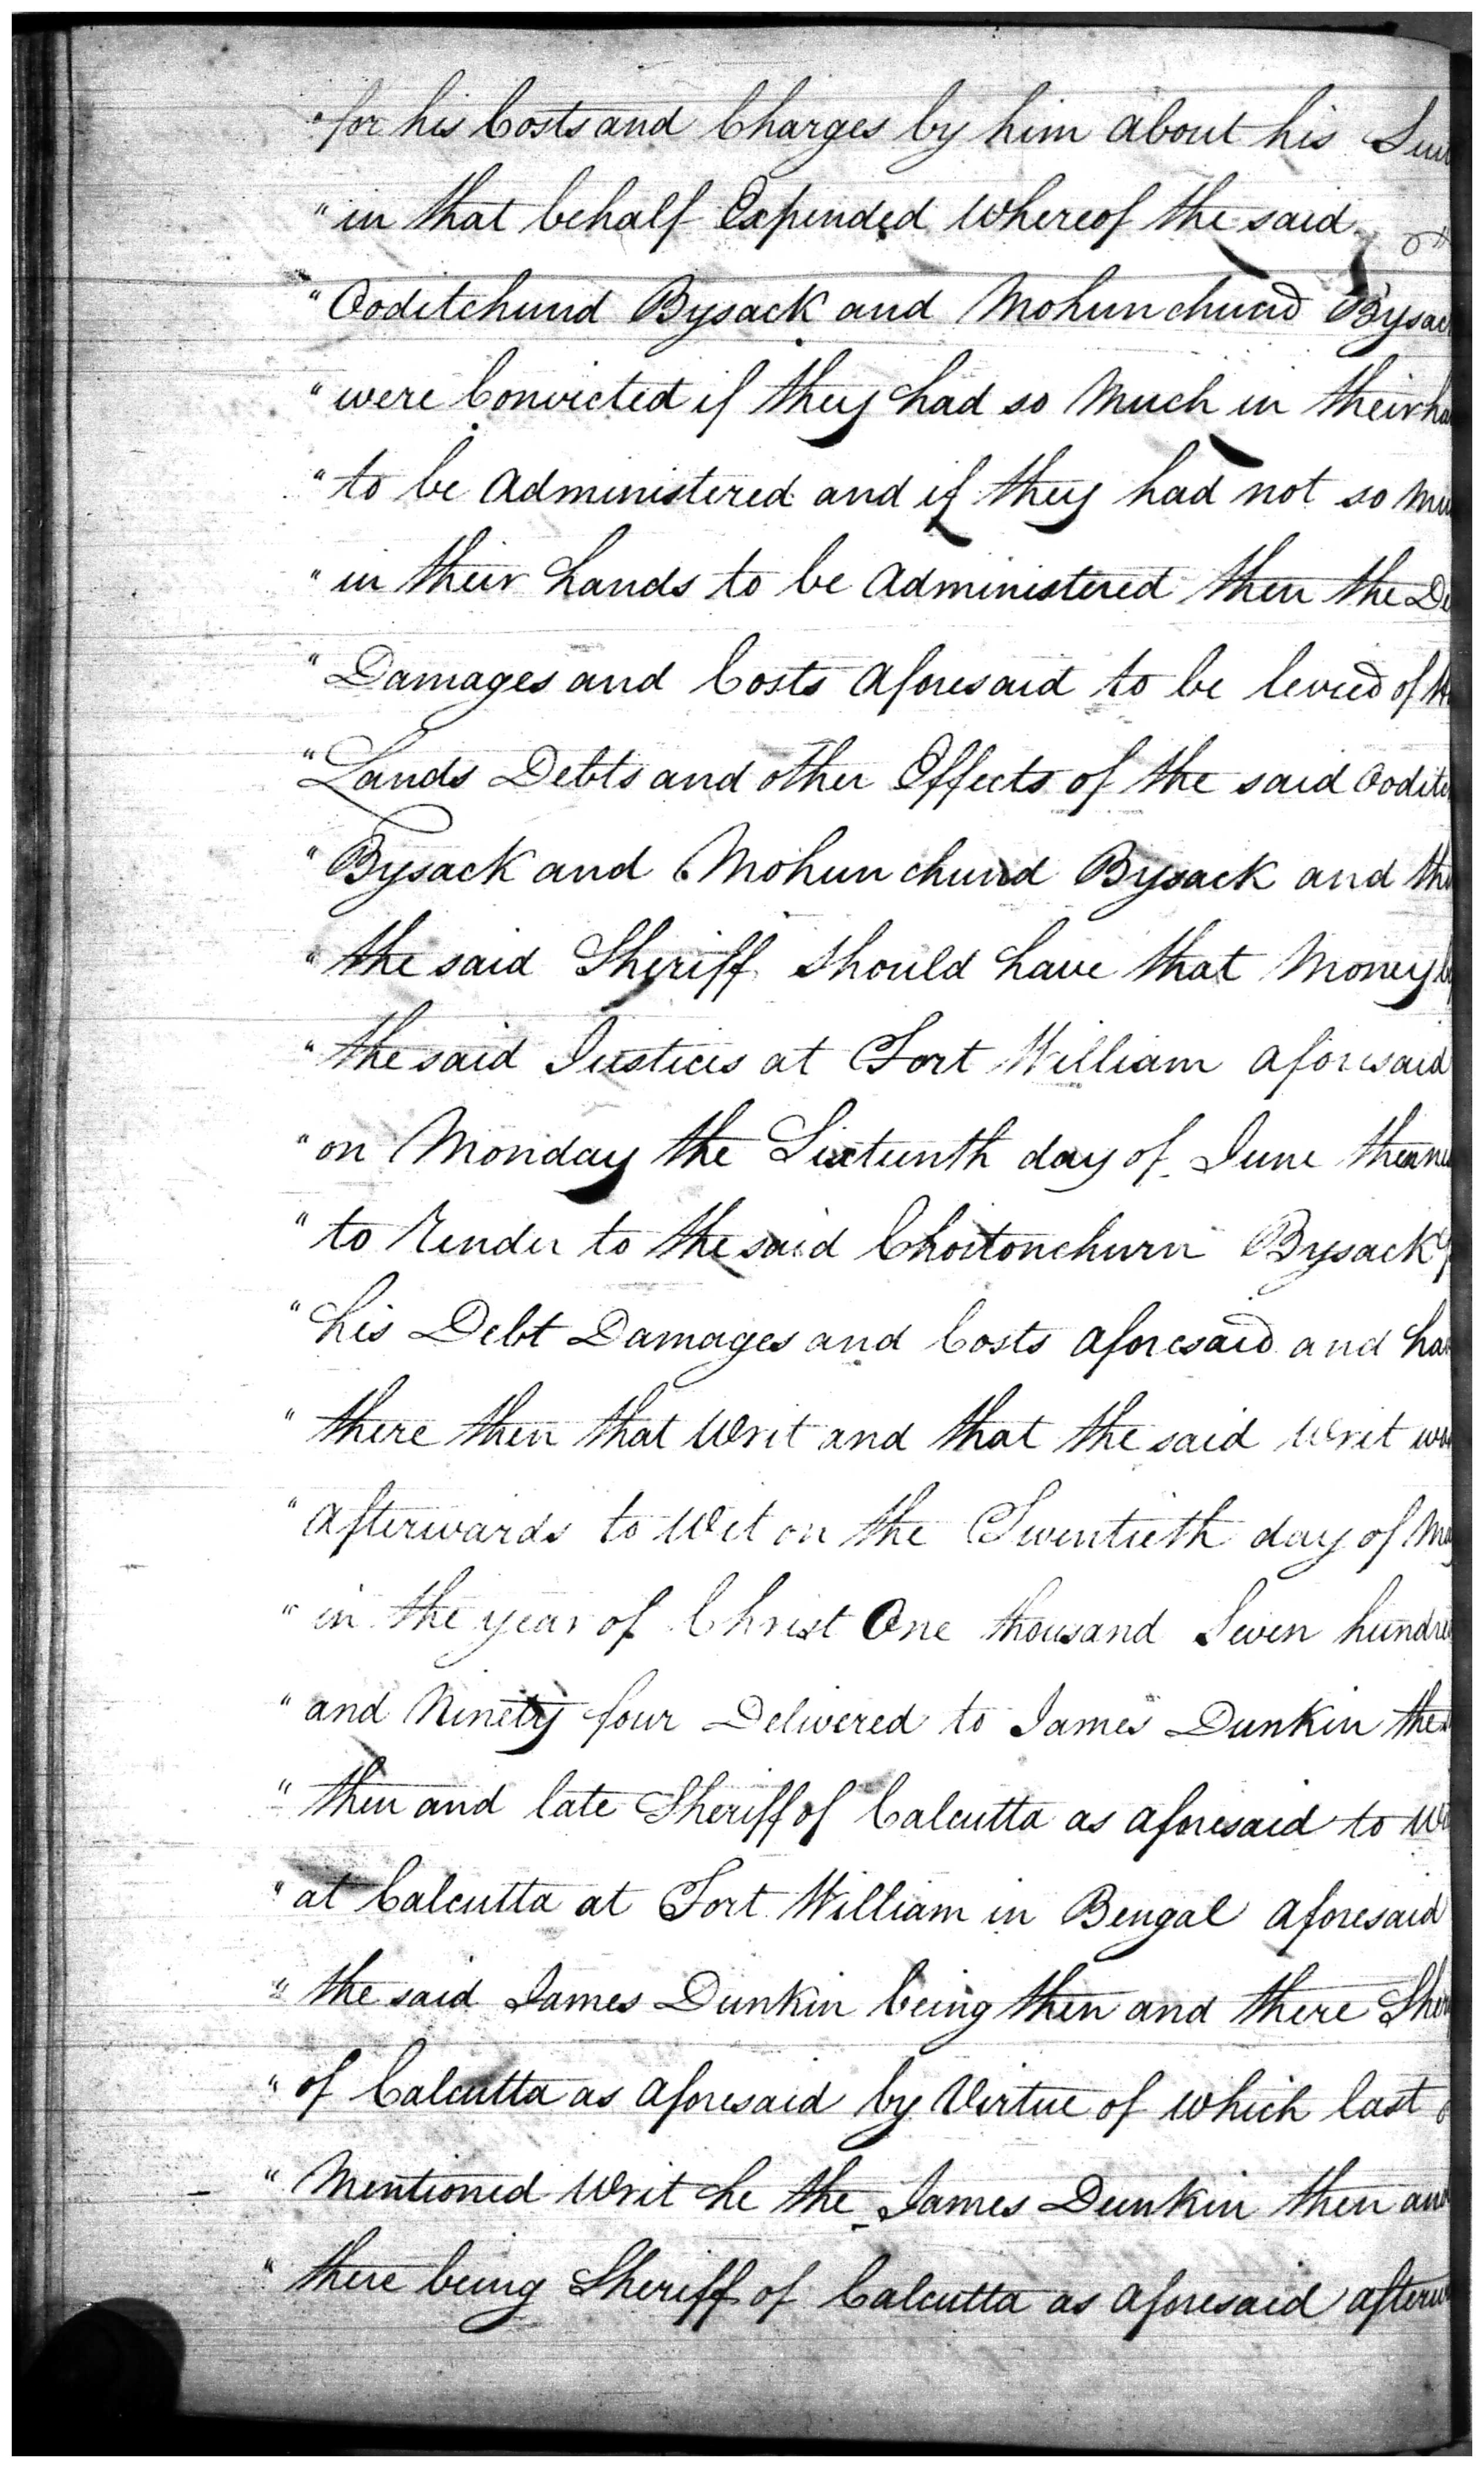 "for his Costs and Charges by him about his Sui
"in that behalf Expended whereof the said
"Ooditchund Bysack and Mohunchund Bysac
"were Convicted if they had so Much in their ha
"to be Administered and if they had not so Mu
"in their hands to be Administered then the De
"Damages and Costs Aforesaid to be levied of th
"Lands Debts and other Effects of the said Oodit
"Bysack and Mohunchund Bysack and tha
"the said Sheriff should have that Money be
"the said Justices at Fort William aforesaid
"on Monday the Sixteenth day of June then ne
"to Render to the said Choitonchurn Bysack
"his Debt Damages and Costs aforesaid and ha
"there then that Writ and that the said Writ wa
"Afterwards to Wit on the Twentieth day of Ma
"in the year of Christ One thousand Seven hundre
"and Ninety four Delivered to James Dunkin the
"then and late Sheriff of Calcutta as aforesaid to Wi
"at Calcutta at Fort William in Bengal aforesaid
"the said James Dunkin being then and there Sher
"of Calcutta as aforesaid by Virtue of which last
"Mentioned Writ he the James Dunkin then and
"there being Sheriff of Calcutta as aforesaid afterw